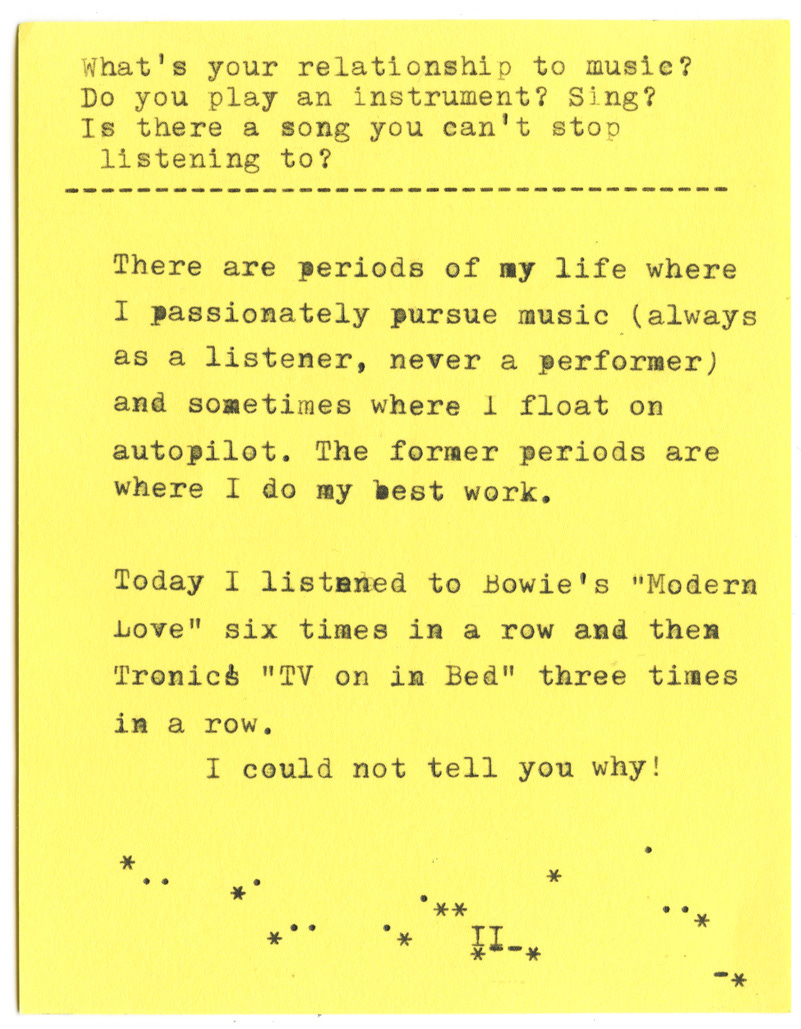 What's your relationship to music?
Do you play an instrument? Sing?
Is there a song you can't stop
listening to?
--------------------------------------
There are periods of my life where
I passionately pursue music (always
as a listener, never a performer)
and sometimes where I float on
autopilot. The former periods are
where I do my best work.
Today I listened to Bowie's "Modern
Love" six times in a row and then
Tronics "TV on in Bed" three times
in a row.
I could not tell you why!